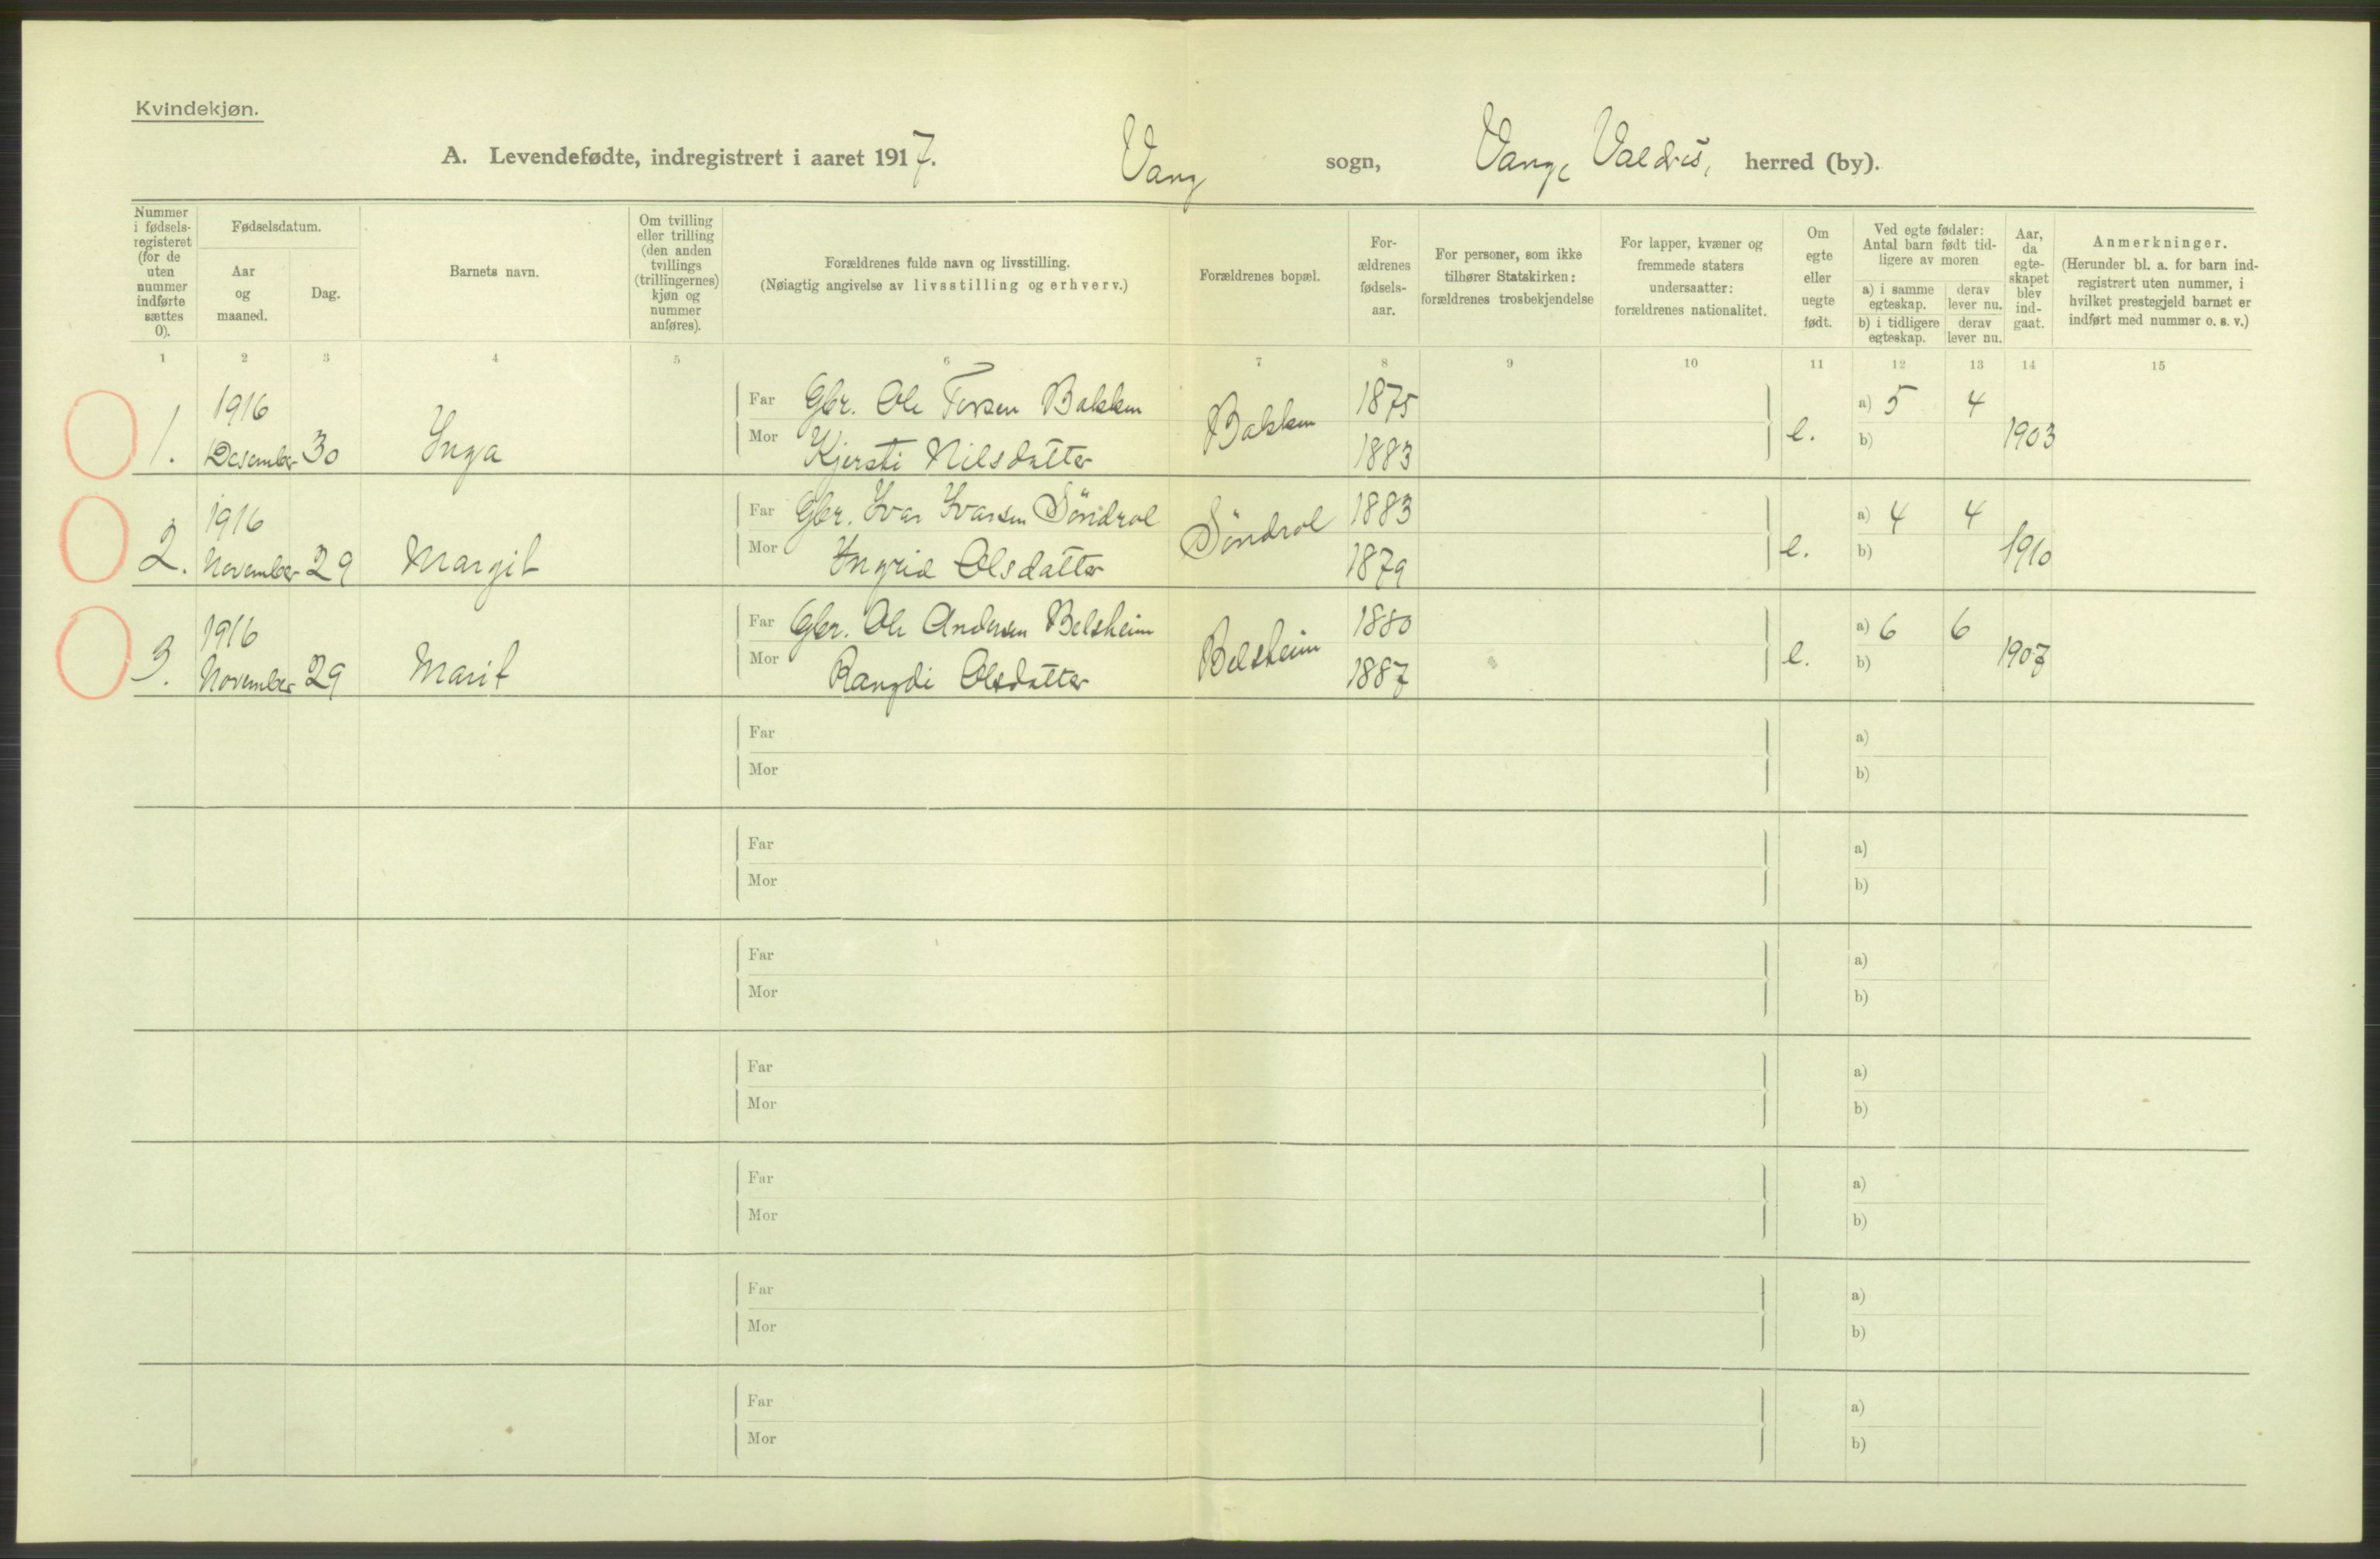 Kvindekjøn.
A. Levendefødte, indregistrert i aaret 1917. Vang sogn, Vang, Valdres, herred (by).
Nummer i fødselsregisteret (for de uten nummer indførte sættes 0).
Fødselsdatum.
Aar og maaned.
Dag.
Barnets navn.
Om tvilling eller trilling (den anden tvillings (trillingernes) kjøn og nummer anføres).
Forældrenes fulde navn og livsstilling.
(Nøiagtig angivelse av livsstilling og erhverv.)
Forældrenes bopæl.
Forældrenes fødselsaar.
For personer, som ikke tilhører Statskirken: forældrenes trosbekjendelse
For lapper, kvæner og fremmede staters undersaatter: forældrenes nationalitet.
Om egte eller uegte født.
Ved egte fødsler: Antal barn født tidligere av moren
a) i samme egteskap. derav lever nu.
b) i tidligere egteskap. derav lever nu.
Aar, da egteskapet blev indgaat.
Anmerkninger.
(Herunder bl. a. for barn indregistrert uten nummer, i hvilket prestegjeld barnet er indført med nummer o. s. v.)
1 2 3 4 5 6 7 8 9 10 11 12 13 14 15
1. 1916 Desember 30 Inga
Far Gbr. Ole Bakken Bakken 1875 e. a) 5 4 1903
Mor Kjersti Nilsdatter 1883 b)
2. 1916 November 29 Margit
Far Gbr. Ivar Ivarsen Söndrol Söndrol 1883 e. a) 4 4 1910
Mor Ingrid Olsdatter 1879 b)
3. 1916 November 29 Marit
Far Gbr. Ole Andersen Belsheim Belsheim 1880 e. a) 6 6 1907
Mor Rangdi Olsdatter 1887 b)
Far a)
Mor b)
Far a)
Mor b)
Far a)
Mor b)
Far a)
Mor b)
Far a)
Mor b)
Far a)
Mor b)
Far a)
Mor b)